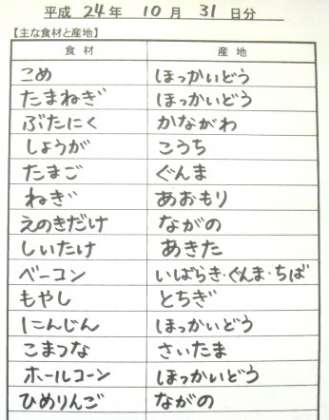 平成 24 年 10 月 31 日分
【主な食材と産地】
食材 産地
こめ ほっかいどう
たまねぎ ほっかいどう
ぶたにく かながわ
しょうが こうち
たまご ぐんま
ねぎ あおもり
えのきだけ ながの
しいたけ あきた
ベーコン いばらき・ぐんま・ちば
もやし とちぎ
にんじん ほっかいどう
こまつな さいたま
ホールコーン ほっかいどう
ひめりんご ながの